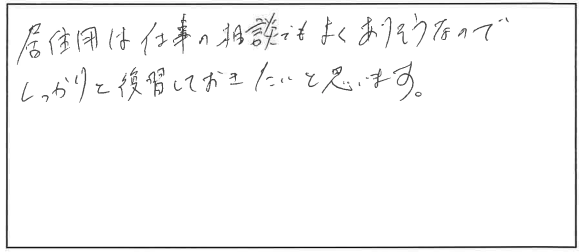 居住用は仕事の相談でもよくありそうなので
しっかりと復習しておきたいと思います。